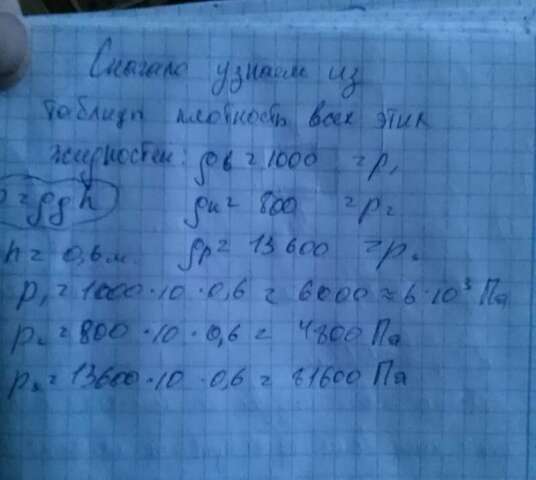 Сначала узнаем из
таблицы плотность всех этих
жидкостей: ρв = 1000 = p₁
p = ρgh ρк = 800 = p₂
h = 0,6 м. ρр = 13 600 = p₃
p₁ = 1000 · 10 · 0,6 = 6000 = 6 · 10³ Па
p₂ = 800 · 10 · 0,6 = 4800 Па
p₃ = 13600 · 10 · 0,6 = 81600 Па